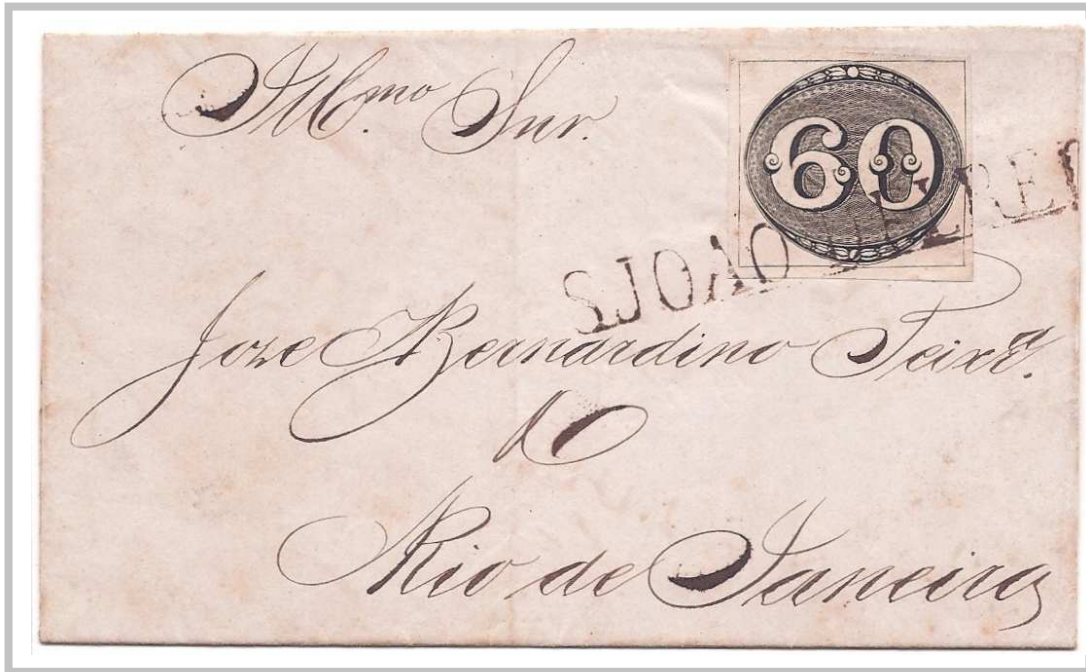 Illmo. Snr.
60
S JOAO D'ELREI
Joze Bernardino Teixra.
Rio de Janeiro